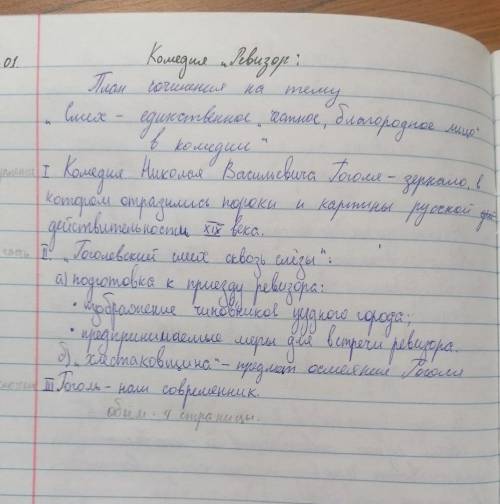 01. Комедия „Ревизор":
План сочинения на тему
„Смех - единственное „честное, благородное лицо"
в комедии"
I Комедия Николая Васильевича Гоголя - зеркало, в
котором отразились пороки и картины русской
действительности XIX века.
часть II. „Гоголевский смех сквозь слёзы":
а) подготовка к приезду ревизора:
• изображение чиновников уездного города;
• предпринимаемые меры для встречи ревизора.
б) „хлестаковщина" - предмет осмеяния Гоголя
III Гоголь - наш современник.
объём - 4 страницы.